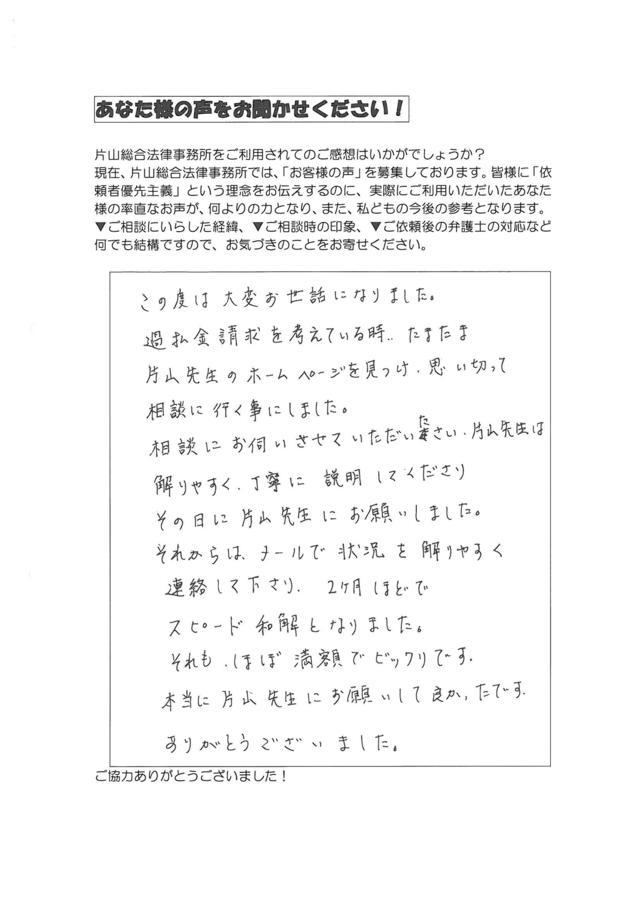 あなた様の声をお聞かせください!
片山総合法律事務所をご利用されてのご感想はいかがでしょうか?
現在、片山総合法律事務所では、「お客様の声」を募集しております。皆様に「依
頼者優先主義」という理念をお伝えするのに、実際にご利用いただいたあなた
様の率直なお声が、何よりの力となり、また、私どもの今後の参考となります。
▼ご相談にいらした経緯、▼ご相談時の印象、▼ご依頼後の弁護士の対応など
何でも結構ですので、お気づきのことをお寄せください。
この度は大変お世話になりました。
過払金請求を考えている時、、たまたま
片山先生のホームページを見つけ、思い切って
相談に行く事にしました。
相談にお伺いさせていただいたさい、片山先生は
解りやすく、丁寧に説明してくださり
その日に片山先生にお願いしました。
それからは、メールで状況を解りやすく
連絡して下さり、2ヶ月ほどで
スピード和解となりました。
それも、ほぼ満額でビックリです。
本当に片山先生にお願いして良かったです。
ありがとうございました。
ご協力ありがとうございました!